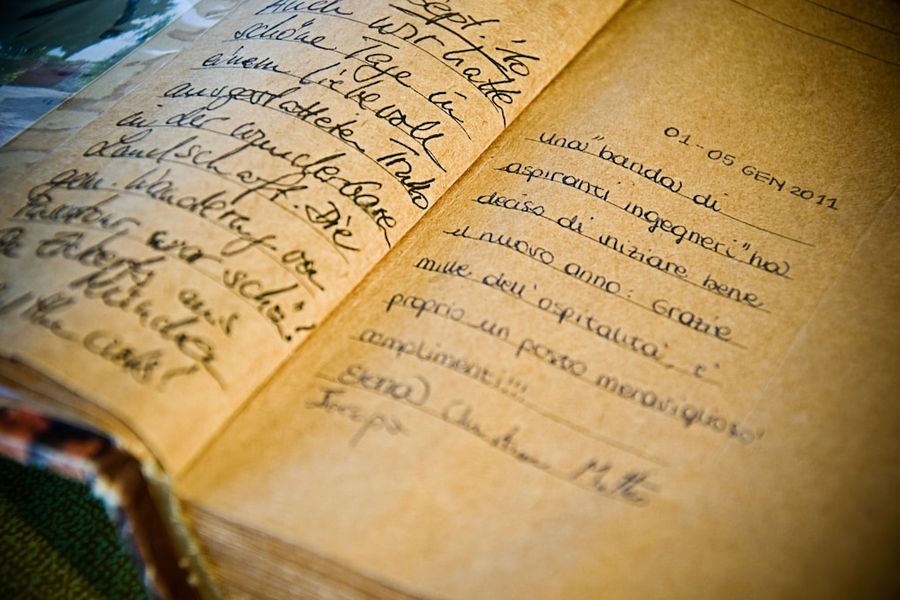 Sept. '10
Auch wir hatten
schöne Tage in
einem liebevoll
ausgestatteten Trullo
in der wunderbaren
Landschaft. Die
gem. Wanderung von
war schön!
01-05 GEN 2011
una "banda di
aspiranti ingegneri" ha
deciso di iniziare bene
il nuovo anno: Grazie
mille dell'ospitalità, e'
proprio un posto meraviglioso!
complimenti!!!
Elena Christian Matteo